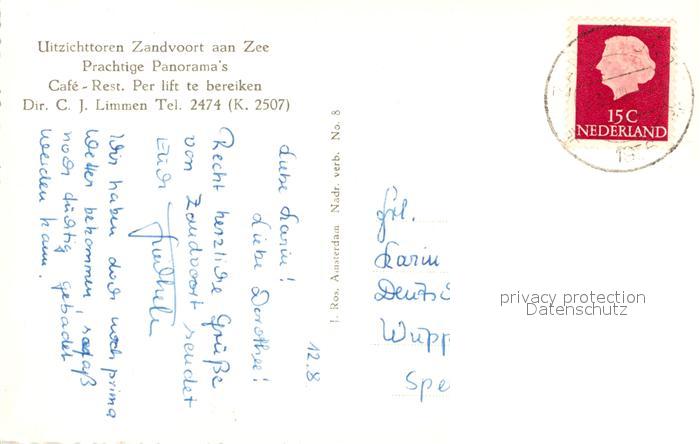 Uitzichttoren Zandvoort aan Zee
Prachtige Panorama's
Café - Rest. Per lift te bereiken
Dir. C. J. Limmen Tel. 2474 (K. 2507)
12.8
Liebe Karin!
Liebe Dorothee!
Recht herzliche Grüße
von Zandvoort sendet
Euch
Wir haben doch noch prima
Wetter bekommen, sodaß
noch tüchtig gebadet
werden kann.
J. Ros. Amsterdam Nadr. verb. No. 8
15 C
NEDERLAND
Frl.
Karin
Deutsc
Wupp
Spe
privacy protection
Datenschutz